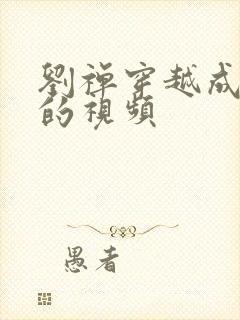 劉禪穿越成
的視頻
愚者